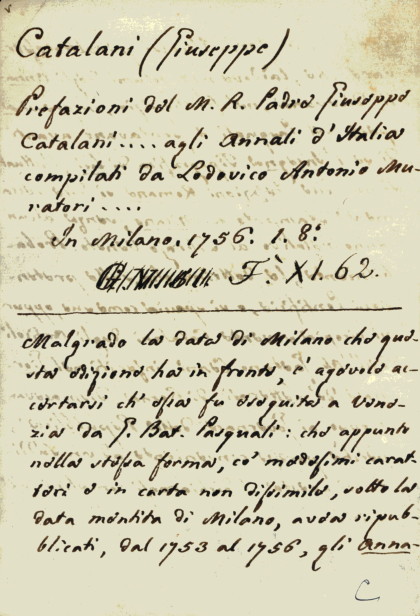 Catalani (Giuseppe)
Prefazioni del M. R. Padre Giuseppe
Catalani.... agli Annali d'Italia
compilati da Lodovico Antonio Mu-
ratori....
In Milano. 1756. 1. 8.º
F. XI. 62.
Malgrado la data di Milano che que-
sta edizione ha in fronte, è agevole ac-
certarsi ch'essa fu eseguita a Vene-
zia da G. Bat. Pasquali: che appunto
nella stessa forma, co' medesimi carat-
teri e in carta non dissimile, sotto la
data mentita di Milano, avea ripub-
blicati, dal 1753 al 1756, gli Anna-
C